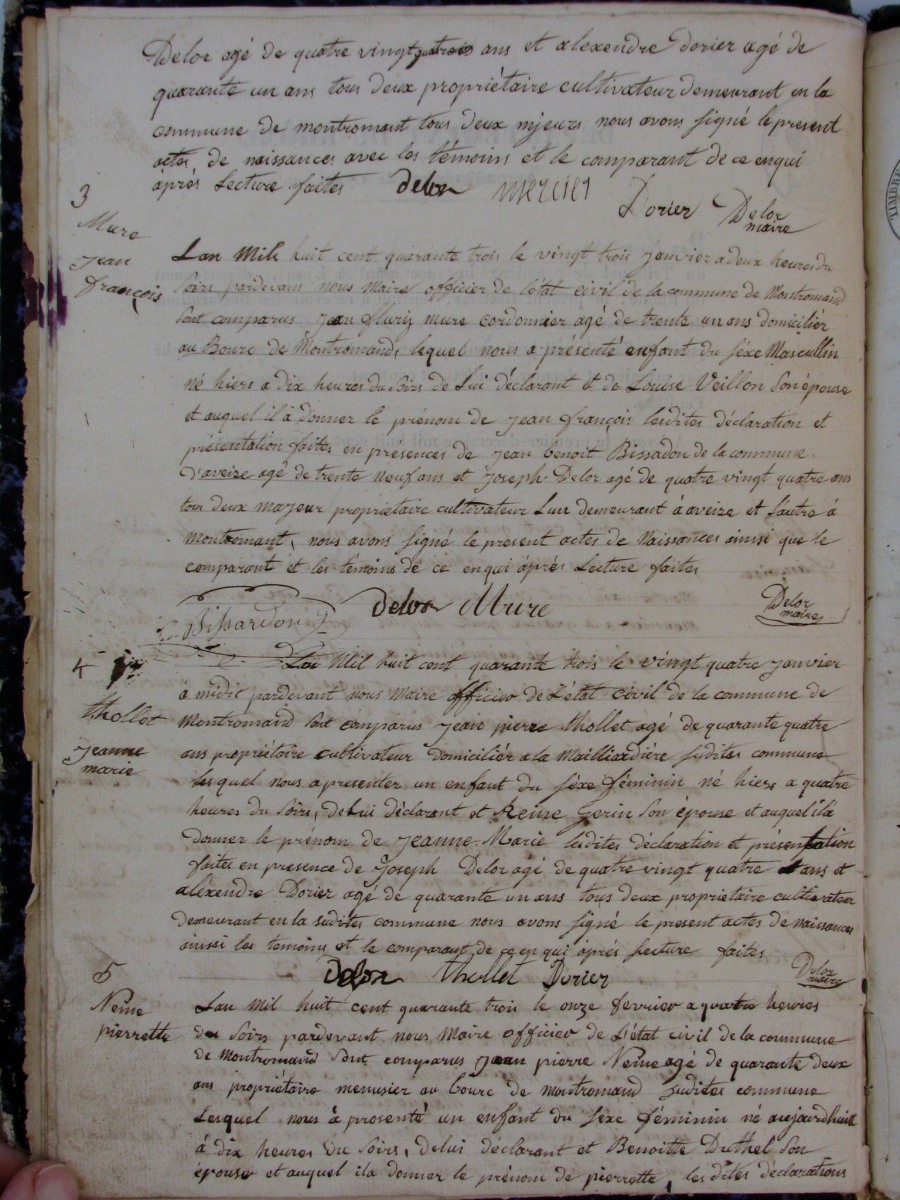 Delor agé de quatre vingt quatre ans et alexendre dorier agé de
quarante un ans tous deux propriétaire cultivateur demeurant en la
commune de montromant tous deux mjeurs nous avons signé le present
actes de naissances avec les témoins et le comparant de ce enqui
après Lecture faites Delor mercier
Dorier Delor
maire
3
Mure
jean
françois
Lan Mil huit cent quarante trois le vingt trois janvier a deux heures du
Soirs pardevant nous Maire officier de l'état civil de la commune de Montromand
Sont comparus jean fleury mure cordonnier agé de trente un ans domiciliér
au Bourc de Montromand, lequel nous a présenté enfant du séxe Mascullin
né hiers a dix heures du Soirs de Lui déclarant et de Louise Veillon Son épouse
et auquel il à donner le prénom de jean françois lesdites déclaration et
présentation faites en présences de jean benoit Bissadon de la commune
d'aveize agé de trente neuf ans et joseph Delor agé de quatre vingt quatre ans
tous deux majeur propriétaire cultivateur Lun demeurant à aveize et Lautre à
Montromant, nous avons signé le present actes de Naissances ainisi que le
comparant et les témoins de ce enqui áprès Lecture faites
Bissardon Delor Mure Delor
maire
4
thollet
jeanne
marie
Lan Mil huit cent quarante trois le vingt quatre janvier
à midit pardevant nous Maire officier de L'état civil de la commune de
Montromand Sont comparus jean pierre thollet agé de quarante quatre
ans propriétaire cultivateur Domiciliér a la Mailliardière Sudites commune
lesquel nous a presenter un enfant du séxe féminin né hiers a quatre
heures du Soirs, de Lui déclarant et Reine Gerin Son épouse et auquel il à
donner le prénom de jeanne-Marie lesdites déclaration et présentation
faites en presence de Joseph Delor agé de quatre vingt quatre ans et
alexendre Dorier agé de quarante un ans tous deux propriétaire cultivateur
demeurant en la sudites commune nous avons signé le present actes de naissances
ainssi les temoins et le comparant de ce en qui áprès Lecture faites
Delor thollet Dorier Delor
maire
5
Neime
pierrette
Lan Mil huit cent quarante trois le onze fevrier a quatre heures
du Soirs pardevant nous Maire officier de L'état civil de la commune
de Montromand Sont comparus jean pierre Neime agé de quarante deux
ans propriétaire menusier au bourc de montromand Sudites commune
Lesquel nous à presenté un enfant du Séxe féminin né aujourdhuit
á dix heures du Soirs, delui déclarant et Benoitte Duthel Son
épouse et auquel ila donner le prénom de pierrette, les dites déclarations
TIMBRE